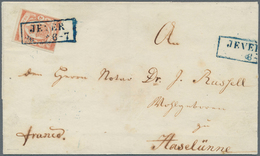 JEVER
6-7
JEVER
A.
den Herrn Notar Dr. J. Russell
Wohlgeboren
zu
franco.
Haselünne